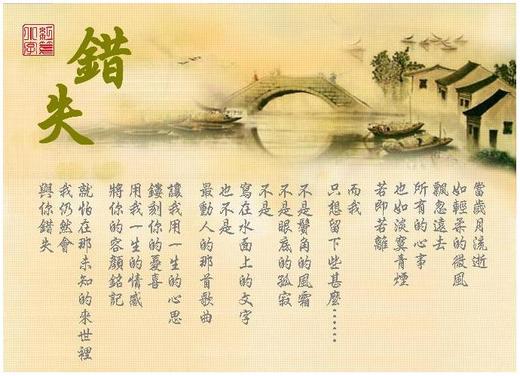 錯失
當歲月流逝
如輕柔的微風
飄忽遠去
所有的心事
也如淡寞青煙
若即若離
而我
只想留下些甚麼……
不是鬢角的風霜
不是眼底的孤寂
不是
寫在水面上的文字
也不是
最動人的那首歌曲
讓我用一生的心思
鏤刻你的憂喜
用我一生的情感
將你的容顏銘記
就怕在那未知的來世裡
我仍然會
與你錯失